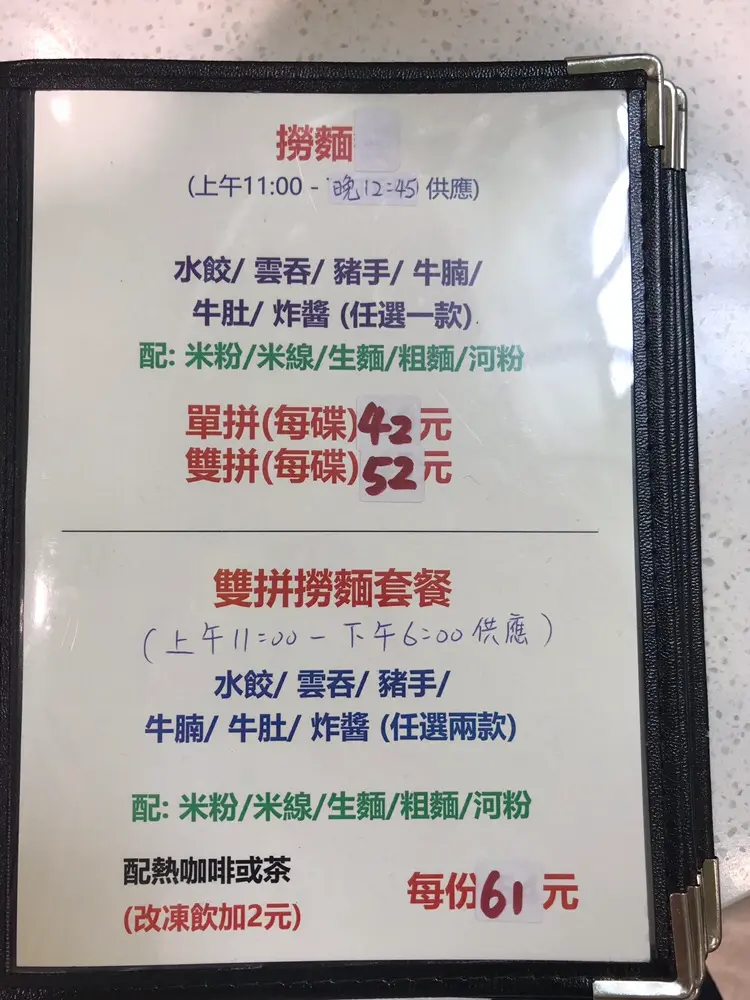 撈麵
(上午11:00 - 晚12:45 供應)
水餃/ 雲吞/ 豬手/ 牛腩/
牛肚/ 炸醬 (任選一款)
配: 米粉/米線/生麵/粗麵/河粉
單拼(每碟)42元
雙拼(每碟)52元
雙拼撈麵套餐
(上午11:00 - 下午6:00 供應)
水餃/ 雲吞/ 豬手/
牛腩/ 牛肚/ 炸醬 (任選兩款)
配: 米粉/米線/生麵/粗麵/河粉
配熱咖啡或茶
(改凍飲加2元)
每份61元